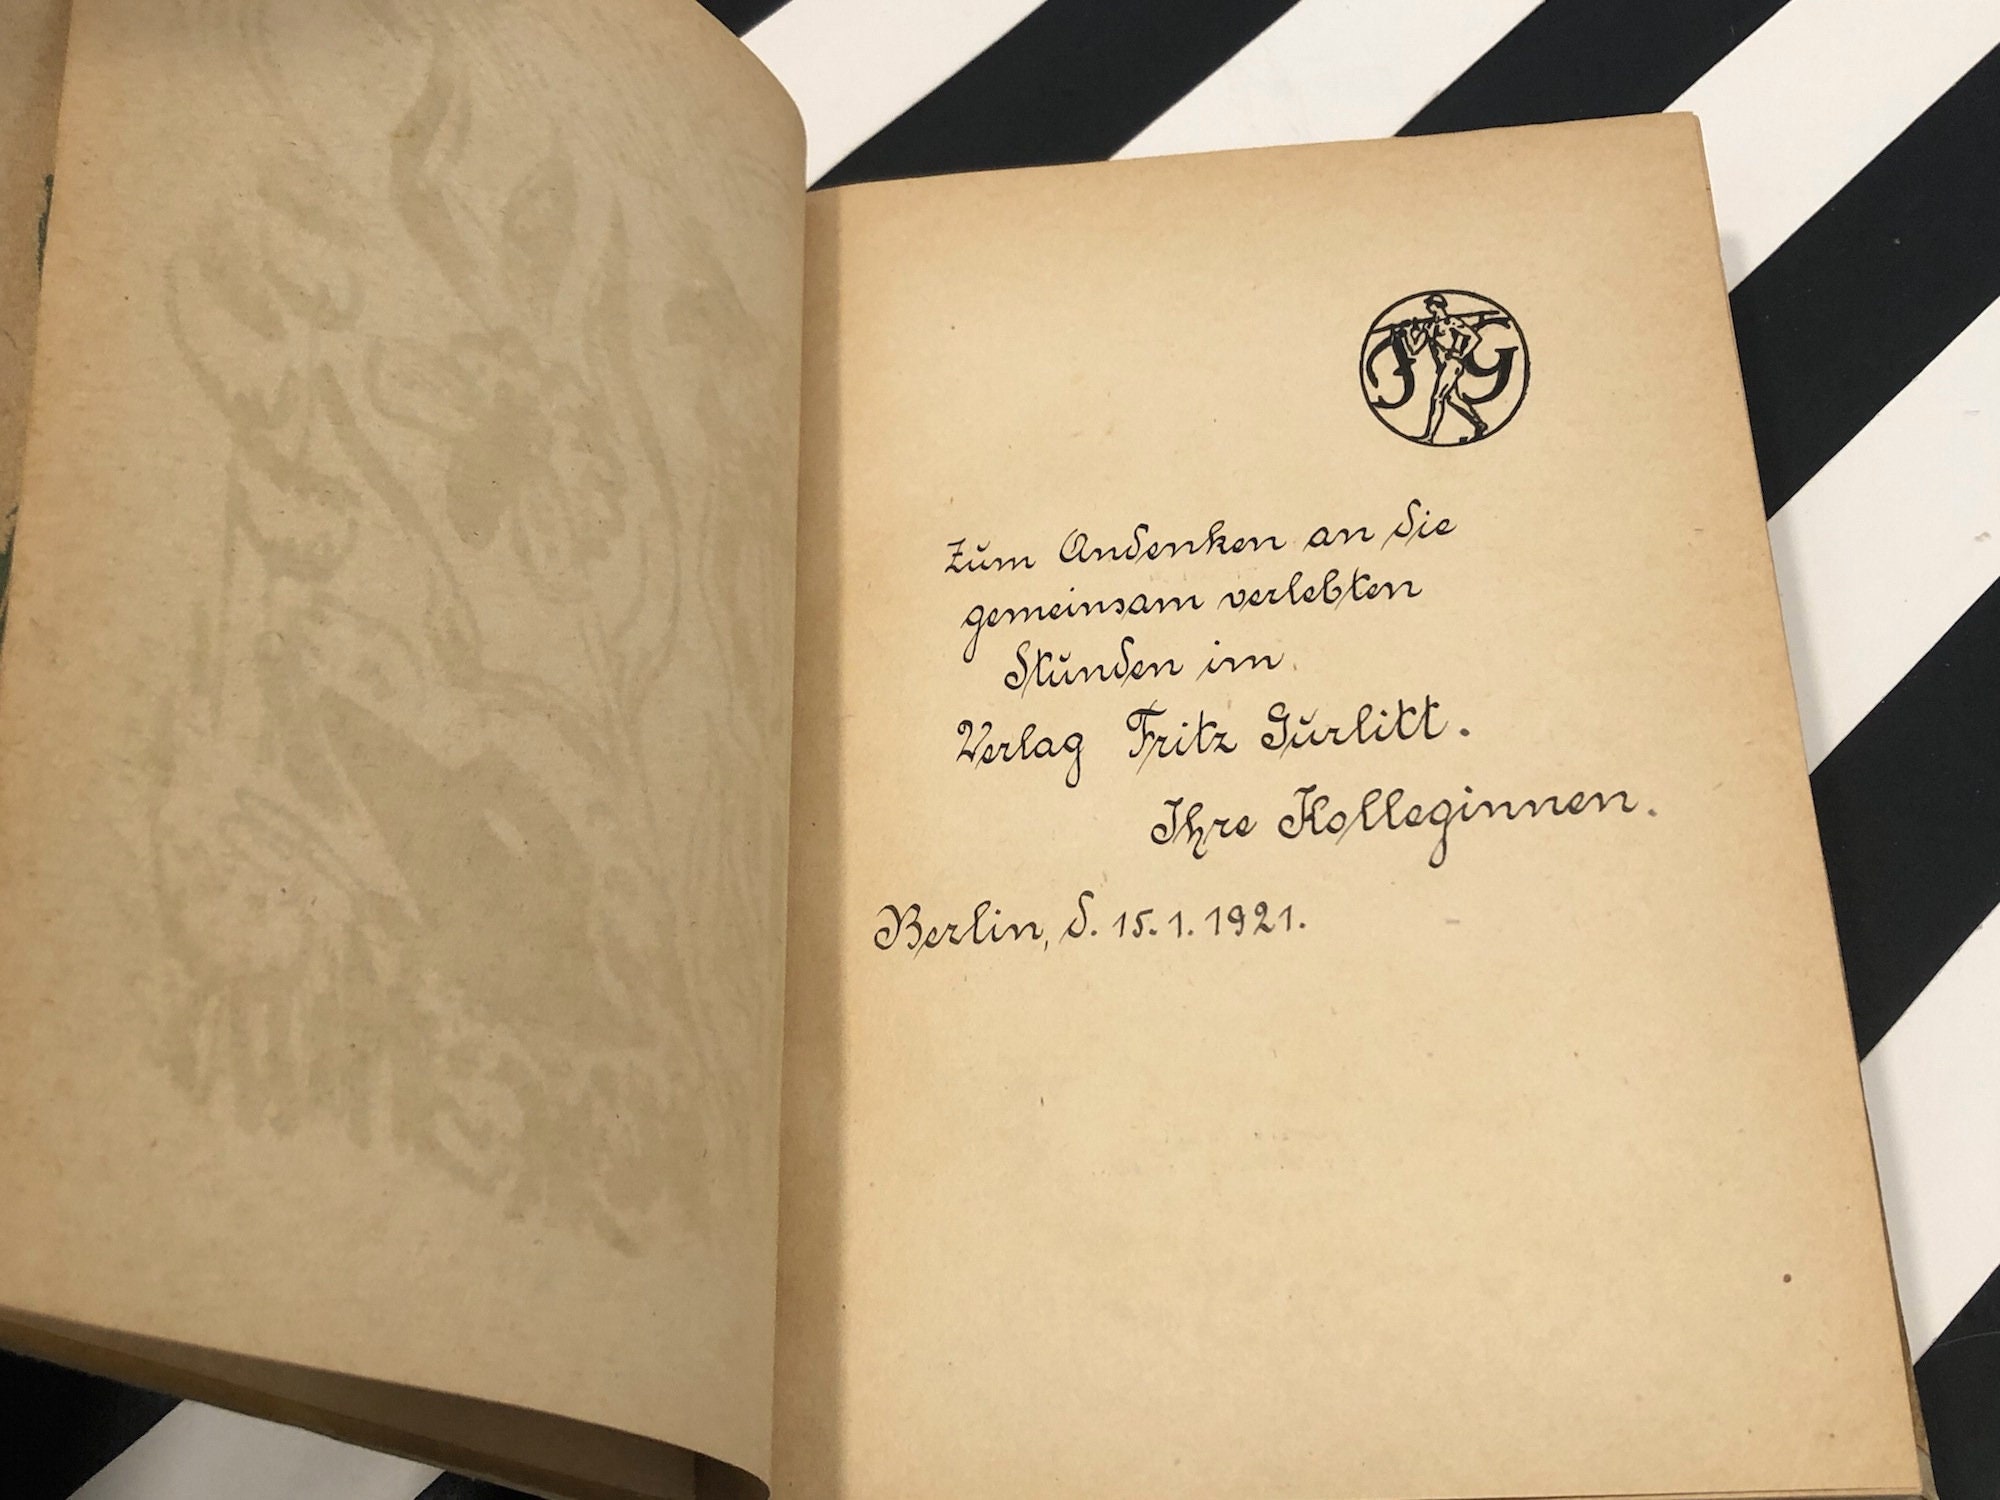 FG
Zum Andenken an die
gemeinsam verlebten
Stunden im
Verlag Fritz Gurlitt.
Ihre Kolleginnen.
Berlin, d. 15.1.1921.